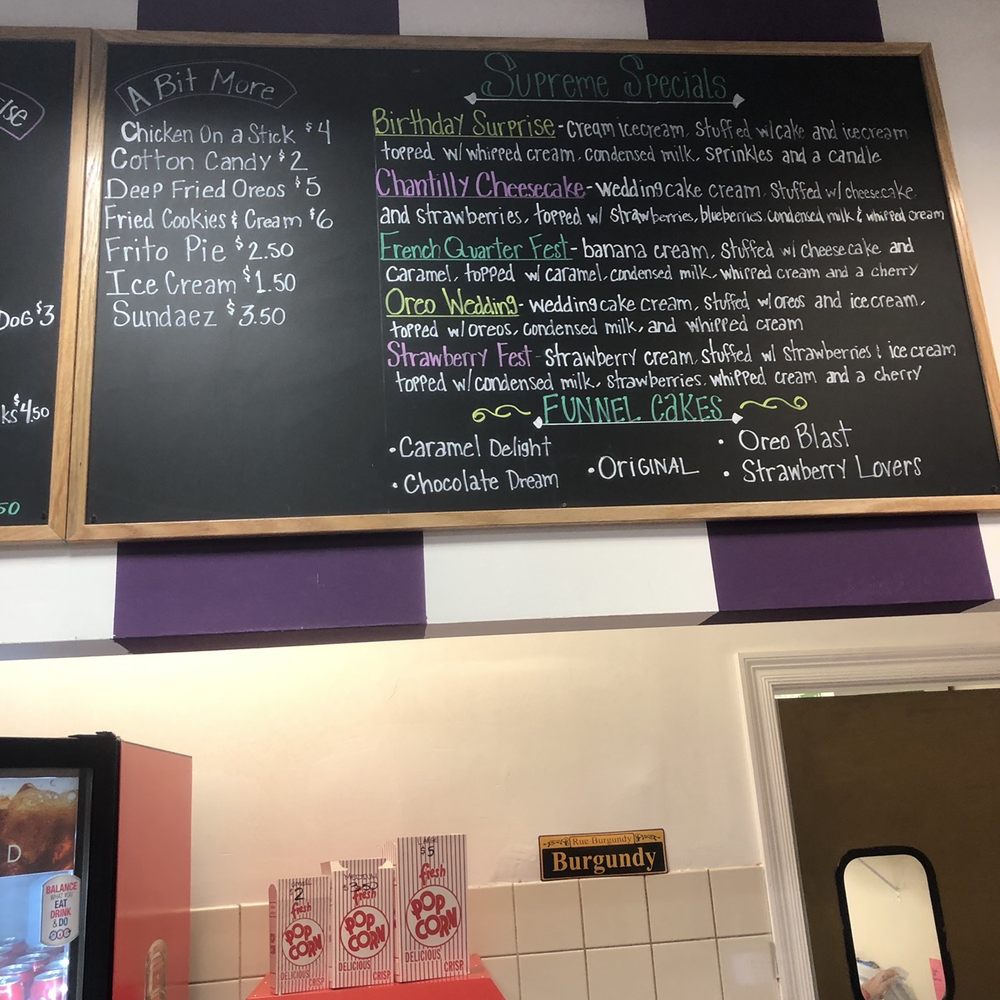 A Bit More
Chicken On a Stick $4
Cotton Candy $2
Deep Fried Oreos $5
Fried Cookies & Cream $6
Frito Pie $2.50
Ice Cream $1.50
Sundaez $3.50
Supreme Specials
Birthday Surprise - cream icecream, stuffed w/cake and icecream
topped w/ whipped cream, condensed milk, sprinkles and a candle
Chantilly Cheesecake - wedding cake cream stuffed w/ cheesecake
and strawberries, topped w/ strawberries, blueberries condensed milk & whipped cream
French Quarter Fest - banana cream, stuffed w/ cheesecake and
caramel, topped w/ caramel, condensed milk, whipped cream and a cherry
Oreo Wedding - wedding cake cream, stuffed w/oreos and ice cream,
topped w/oreos, condensed milk, and whipped cream
Strawberry Fest - strawberry cream, stuffed w/ strawberries & ice cream
topped w/condensed milk, strawberries, whipped cream and a cherry
FUNNEL CAKES
• Caramel Delight
• Chocolate Dream
• ORIGINAL
• Oreo Blast
• Strawberry Lovers
DOG $3
ks $4.50
50
D
BALANCE
WHAT YOU
EAT
DRINK
& DO
2
fresh
POP
CORN
DELICIOUS
CRISP
$3.50
fresh
POP
CORN
DELICIOUS
CRISP
$5
fresh
POP
CORN
DELICIOUS
CRISP
Rue Burgundy
Burgundy